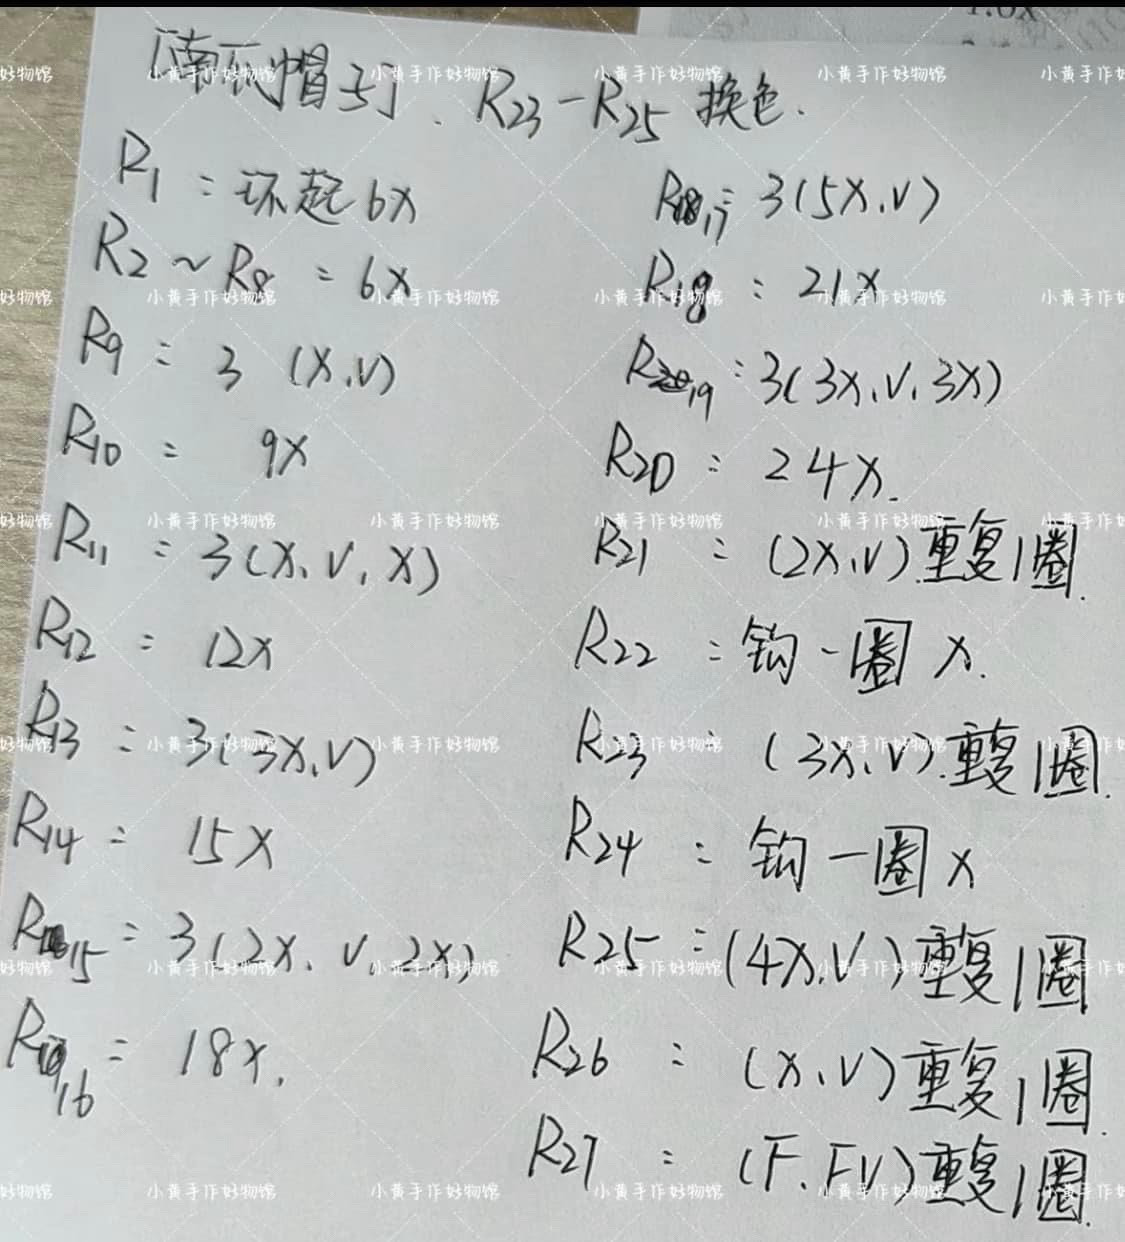 「南瓜帽子」. R23-R25 换色.
R1：环起6X
R2～R8：6X
R9：3 (X.V)
R10：9X
R11：3(X.V.X)
R12：12X
R13：3(3X.V)
R14：15X
R15：3(2X.V.2X)
R16：18X.
R17：3(5X.V)
R18：21X
R19：3(3X.V.3X)
R20：24X.
R21：(2X.V)重复1圈.
R22：钩一圈X.
R23：(3X.V).重复1圈.
R24：钩一圈X
R25：(4X.V)重复1圈
R26：(X.V)重复1圈.
R27：(F.FV)重复1圈.
小黄手作好物馆